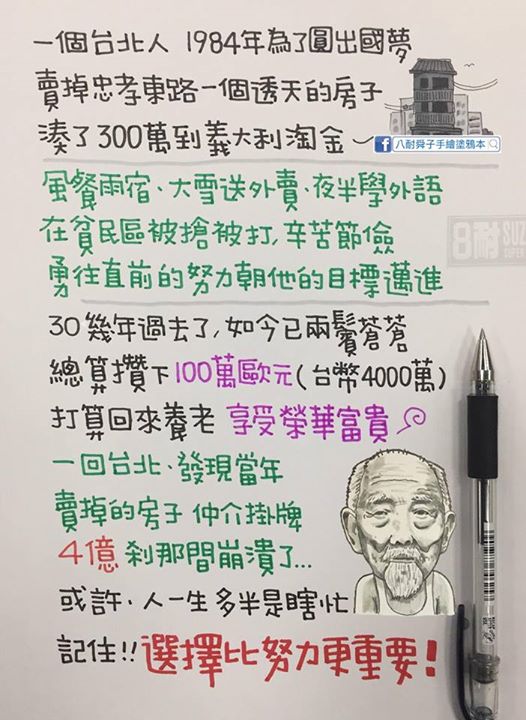 一個台北人 1984年為了圓出國夢
賣掉忠孝東路一個透天的房子
湊了300萬到義大利淘金
f 八耐舜子手繪塗鴉本
風餐雨宿、大雪送外賣、夜半學外語
8耐 SUZ
SUPER
在貧民區被搶被打,辛苦節儉
勇往直前的努力朝他的目標邁進
30幾年過去了,如今已兩鬢蒼蒼
總算攢下100萬歐元(台幣4000萬)
打算回來養老 享受榮華富貴
一回台北、發現當年
賣掉的房子 仲介掛牌
4億 剎那間崩潰了...
或許、人一生多半是瞎忙
記住!!選擇比努力更重要!